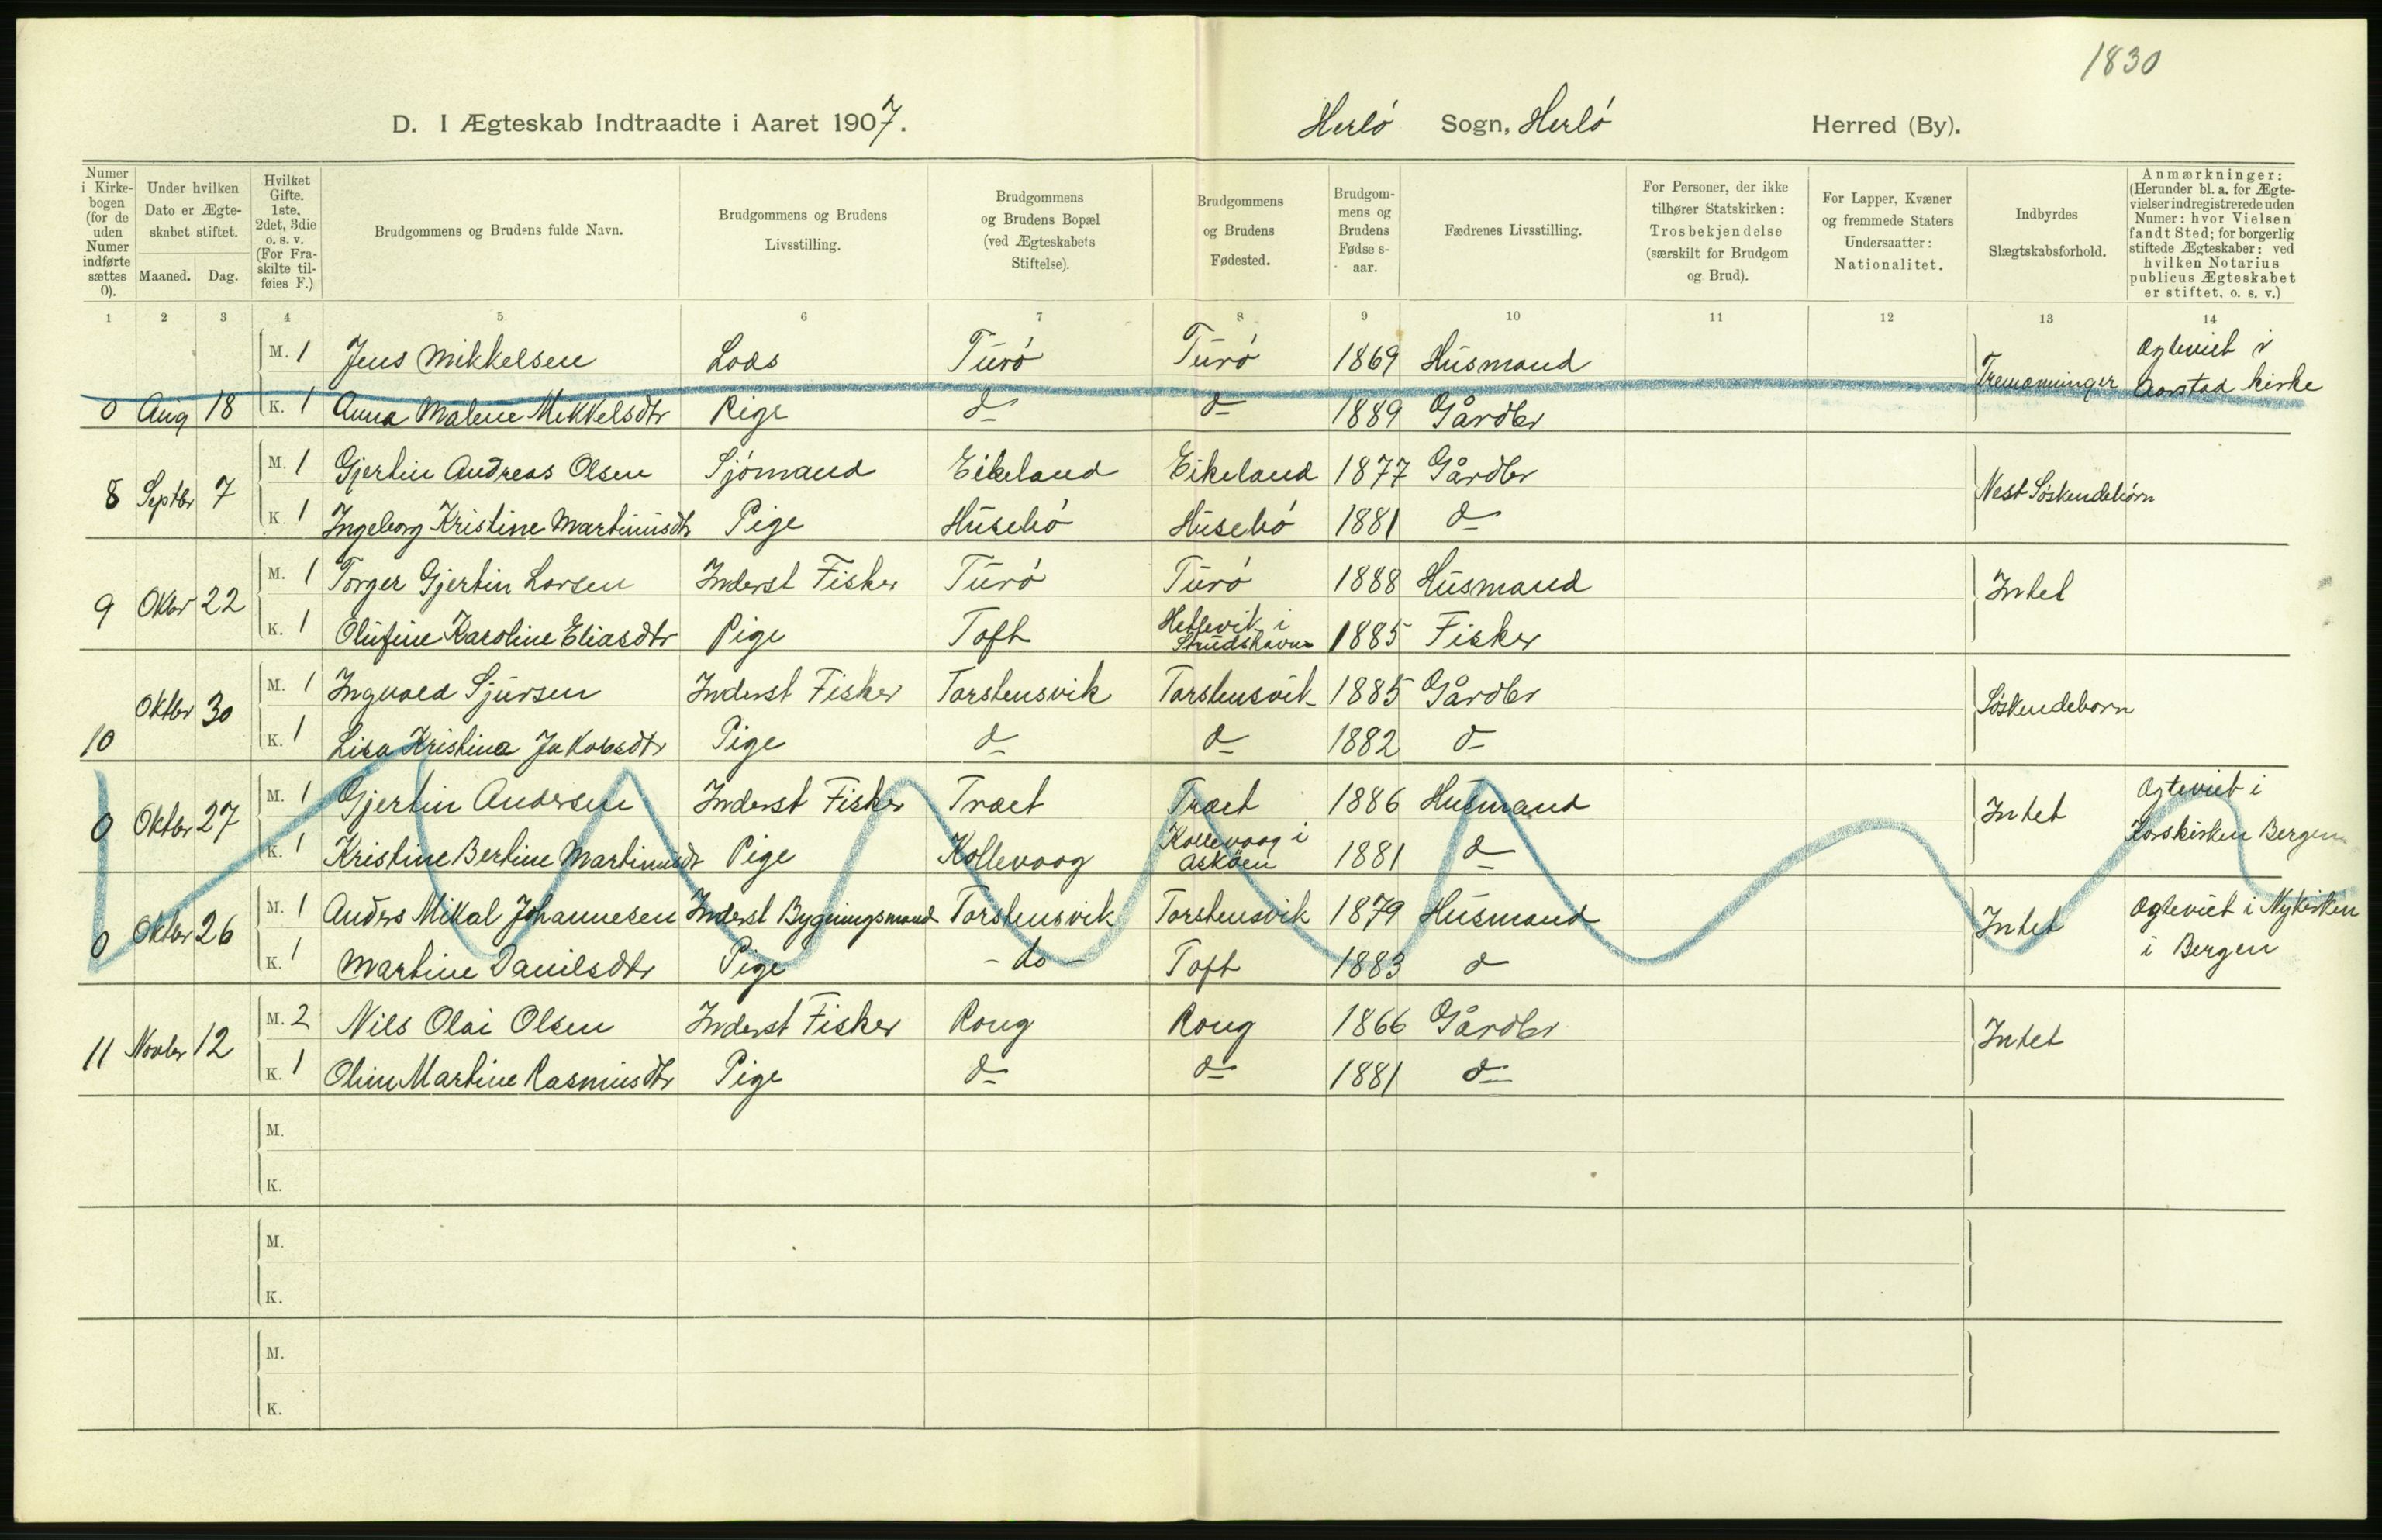 1830
D. I Ægteskab Indtraadte i Aaret 1907. Herlö Sogn, Herlö Herred (By).
Numer i Kirkebogen (for de uden Numer indførte sættes 0).
Under hvilken Dato er Ægteskabet stiftet.
Maaned. Dag.
Hvilket Gifte. 1ste, 2det, 3die o. s. v. (For Fraskilte tilføies F.)
Brudgommens og Brudens fulde Navn.
Brudgommens og Brudens Livsstilling.
Brudgommens og Brudens Bopæl (ved Ægteskabets Stiftelse).
Brudgommens og Brudens Fødested.
Brudgommens og Brudens Fødse s-aar.
Fædrenes Livsstilling.
For Personer, der ikke tilhører Statskirken: Trosbekjendelse (særskilt for Brudgom og Brud).
For Lapper, Kvæner og fremmede Staters Undersaatter: Nationalitet.
Indbyrdes Slægtskabsforhold.
Anmærkninger: (Herunder bl. a. for Ægtevielser indregistrerede uden Numer: hvor Vielsen fandt Sted; for borgerlig stiftede Ægteskaber: ved hvilken Notarius publicus Ægteskabet er stiftet, o. s. v.)
1 2 3 4 5 6 7 8 9 10 11 12 13 14
M. 1 Jens Mikkelsen Lods Turö Turö 1869 Husmand Tremænninger Ægteviet i Aarstad kirke
0 Aug 18 K. 1 Anna Malene Mikkelsdtr Pige d- d- 1889 Gårdbr
8 Septbr 7 M. 1 Gjertin Andreas Olsen Sjömand Eikeland Eikeland 1877 Gårdbr Nest Söskendebörn
K. 1 Ingeborg Kristine Martinusdtr Pige Husebö Husebö 1881 d-
9 Oktbr 22 M. 1 Torger Gjertin Larsen Inderst Fisker Turö Turö 1888 Husmand Intet
K. 1 Olufine Karoline Eliasdtr Pige Toft Hetlevik i Strudshavn 1885 Fisker
Oktbr 30 M. 1 Ingvald Sjursen Inderst Fisker Torstensvik Torstensvik 1885 Gårdbr Söskendebørn
10 K. 1 Lisa Kristina Jakobsdtr Pige d- d- 1882 d-
0 Oktbr 27 M. 1 Gjertin Andersen Inderst Fisker Træet Træet 1886 Husmand Intet Ægteviet i Korskirken Bergen
K. 1 Kristine Bertine Martinusdtr Pige Kollevaag Kollevaag i Asköen 1881 d-
0 Oktbr 26 M. 1 Anders Mikal Johannesen Inderst Bygningsmand Torstensvik Torstensvik 1879 Husmand Intet Ægteviet i Nykirken i Bergen
K. 1 Martine Danilsdtr Pige - do - Toft 1883 d-
11 Novbr 12 M. 2 Nils Olai Olsen Inderst Fisker Rong Rong 1866 Gårdbr Intet
K. 1 Oline Martine Rasmusdtr Pige d- d- 1881 d-
M.
K.
M.
K.
M.
K.